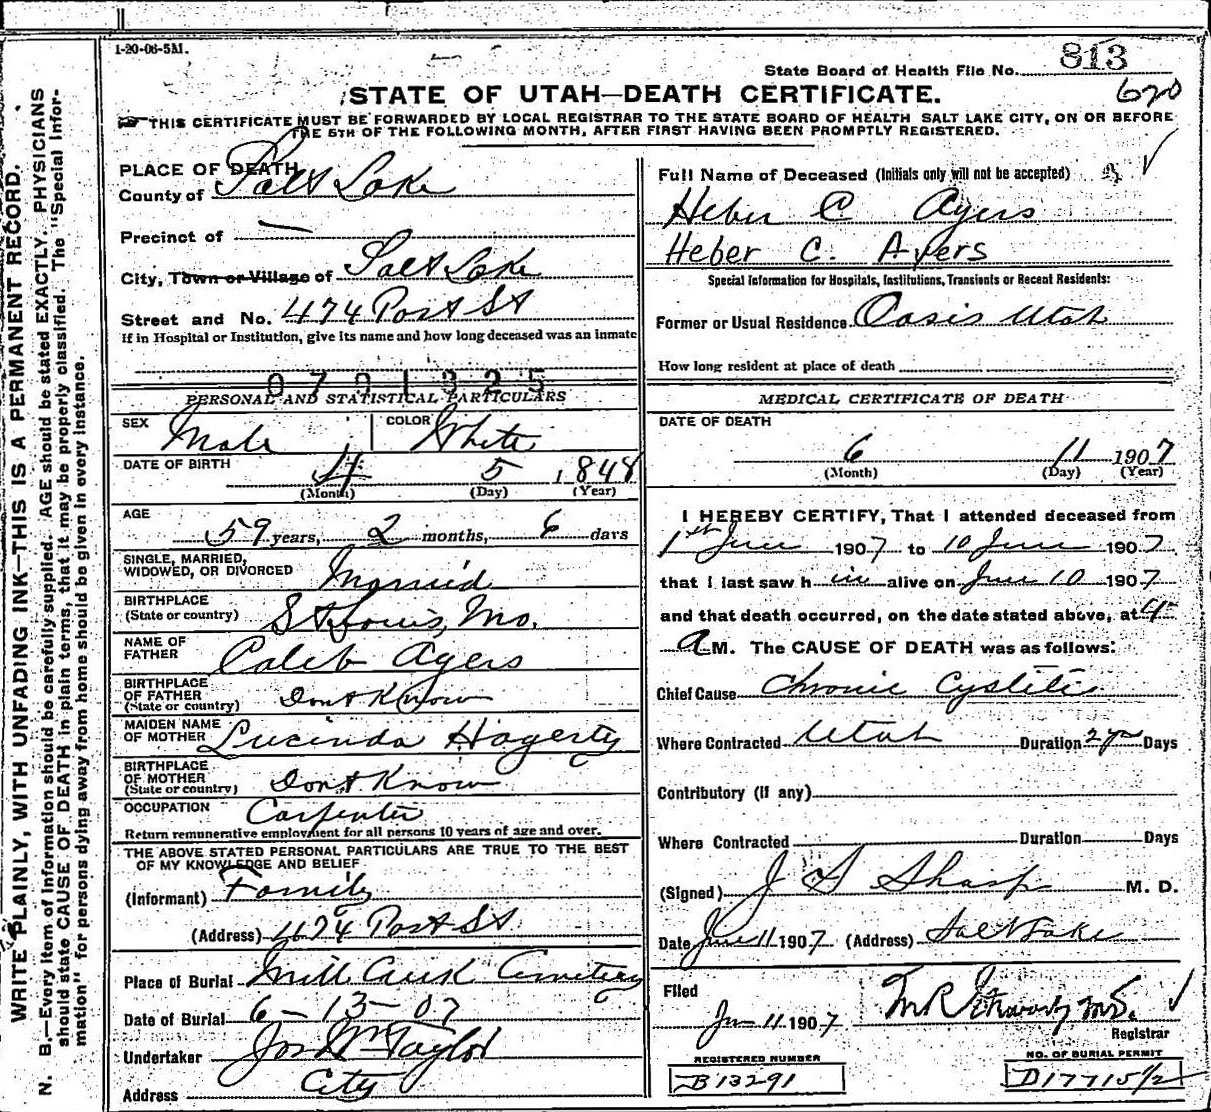 1-20-06-5M.
State Board of Health File No. 813
620
STATE OF UTAH—DEATH CERTIFICATE.
THIS CERTIFICATE MUST BE FORWARDED BY LOCAL REGISTRAR TO THE STATE BOARD OF HEALTH SALT LAKE CITY, ON OR BEFORE
THE 5TH OF THE FOLLOWING MONTH, AFTER FIRST HAVING BEEN PROMPTLY REGISTERED.
WRITE PLAINLY, WITH UNFADING INK—THIS IS A PERMANENT RECORD.
N. B.—Every item of information should be carefully supplied. AGE should be stated EXACTLY. PHYSICIANS
should state CAUSE OF DEATH in plain terms, that it may be properly classified. The "Special Infor-
mation" for persons dying away from home should be given in every instance.
PLACE OF DEATH
County of Salt Lake
Precinct of —
City, Town or Village of Salt Lake
Street and No. 474 Post St
If in Hospital or Institution, give its name and how long deceased was an inmate
0701325
PERSONAL AND STATISTICAL PARTICULARS
SEX Male COLOR White
DATE OF BIRTH 4 5 1848
(Month) (Day) (Year)
AGE
59 years, 2 months, 6 days
SINGLE, MARRIED,
WIDOWED, OR DIVORCED Married
BIRTHPLACE
(State or country) St Louis, Mo.
NAME OF
FATHER Caleb Ayers
BIRTHPLACE
OF FATHER
(State or country) Dont Know
MAIDEN NAME
OF MOTHER Lucinda Hagerty
BIRTHPLACE
OF MOTHER
(State or country) Dont Know
OCCUPATION Carpenter
Return remunerative employment for all persons 10 years of age and over.
THE ABOVE STATED PERSONAL PARTICULARS ARE TRUE TO THE BEST
OF MY KNOWLEDGE AND BELIEF
(Informant) Family
(Address) 474 Post St
Place of Burial Mill Creek Cemetery
Date of Burial 6-13-07
Undertaker Jos Wm Taylor
Address City
Full Name of Deceased (Initials only will not be accepted)
Heber C Ayers
Heber C. Ayers
Special Information for Hospitals, Institutions, Transients or Recent Residents:
Former or Usual Residence Oasis Utah
How long resident at place of death
MEDICAL CERTIFICATE OF DEATH
DATE OF DEATH
6 11 1907
(Month) (Day) (Year)
I HEREBY CERTIFY, That I attended deceased from
1st June 1907 to 10 June 1907
that I last saw h im alive on June 10 1907
and that death occurred, on the date stated above, at 4
A M. The CAUSE OF DEATH was as follows:
Chief Cause Chronic Cystitis
Where Contracted Utah Duration 2 yrs Days
Contributory (if any)
Where Contracted Duration Days
(Signed) J F Sharp M. D.
Date June 11 1907 (Address) Salt Lake
Filed
Jun 11 1907
Registrar
REGISTERED NUMBER
B13291
NO. OF BURIAL PERMIT
D17715 1/2